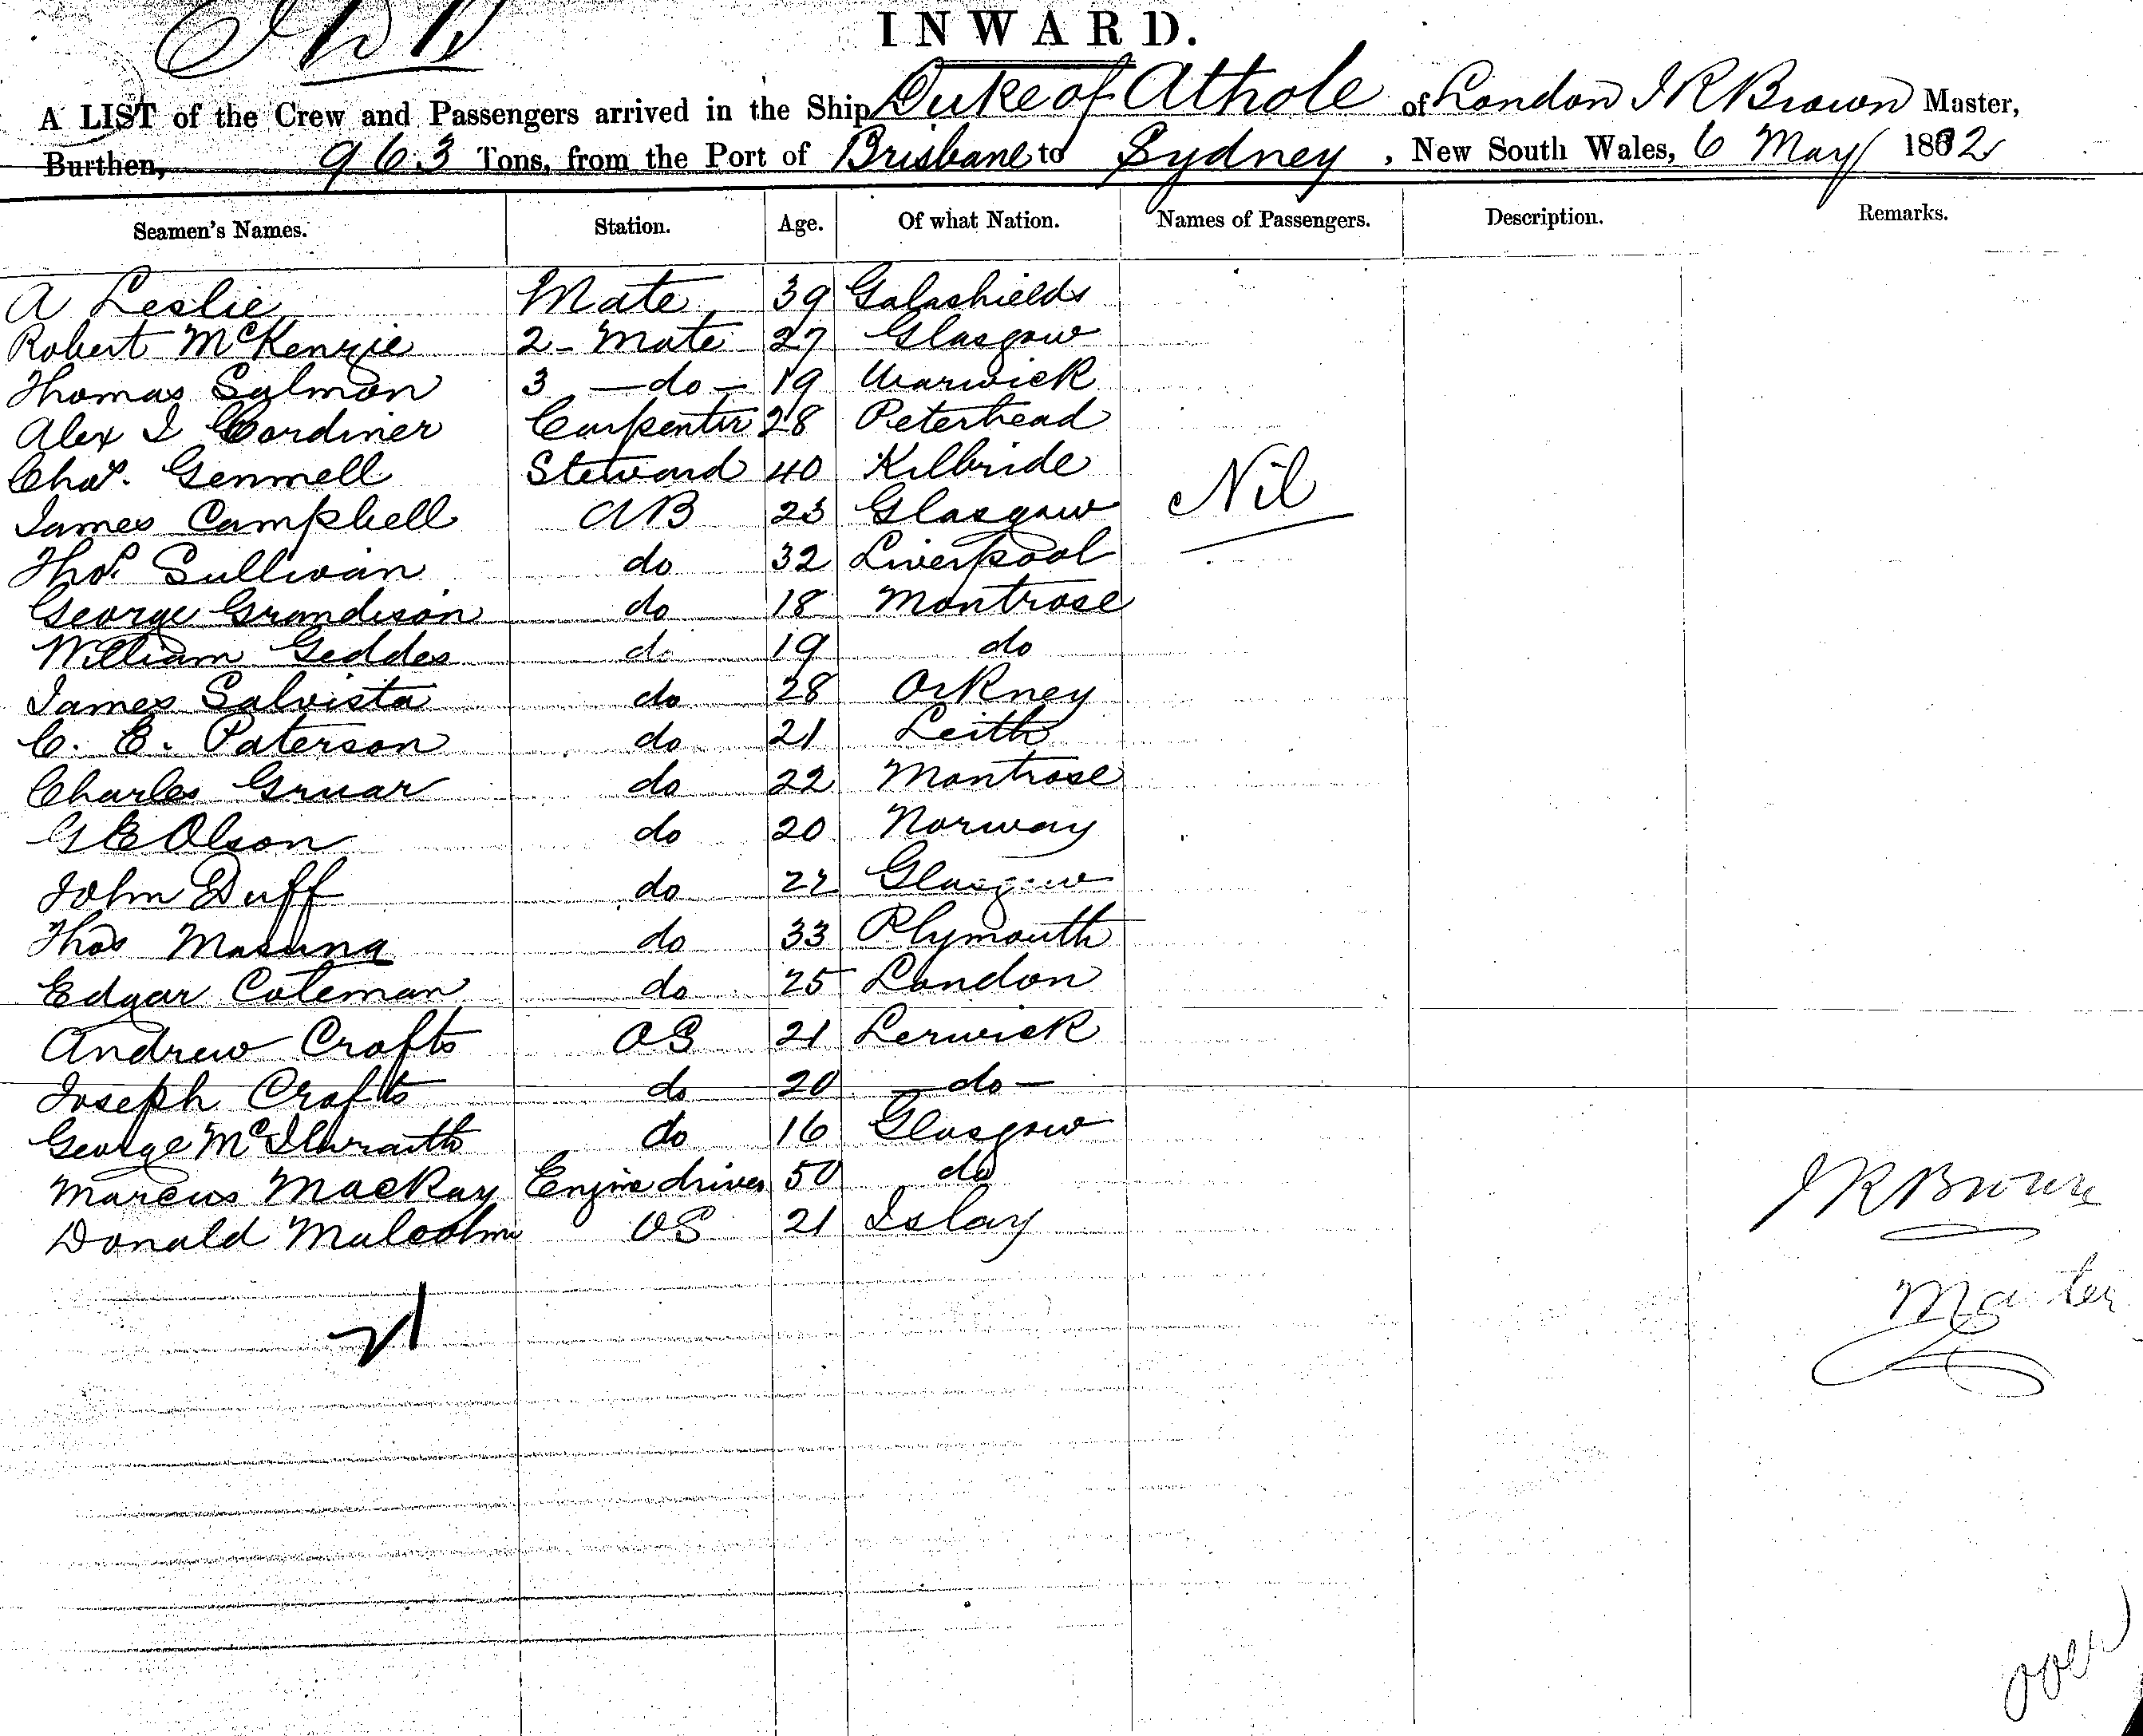 INWARD.
A LIST of the Crew and Passengers arrived in the Ship Duke of Athole of London J R Brown Master,
Burthen, 963 Tons, from the Port of Brisbane to Sydney, New South Wales, 6 May 1882
Seamen's Names. Station. Age. Of what Nation. Names of Passengers. Description. Remarks.
A Leslie Mate 39 Galashields
Robert McKenzie 2 - Mate 27 Glasgow
Thomas Salmon 3 — do — 19 Warwick
Alex J Gordiner Carpenter 28 Peterhead
Chas. Gemmell Steward 40 Kilbride
Nil
James Campbell AB 23 Glasgow
Thos. Sullivan do 32 Liverpool
George Grandison do 18 Montrose
William Geddes do 19 do
James Salvista do 28 Orkney
C. E. Paterson do 21 Leith
Charles Gruar do 22 Montrose
G E Olson do 20 Norway
John Duff do 22 Glasgow
Thos do 33 Plymouth
Edgar Coleman do 25 London
Andrew Crafts OS 21 Lerwick
Joseph Crafts do 20 — do —
George McIlwraith do 16 Glasgow
Marcus MacKay Engine driver 50 do
Donald Malcolm OS 21 Islay
J R Brown
Master
21
over